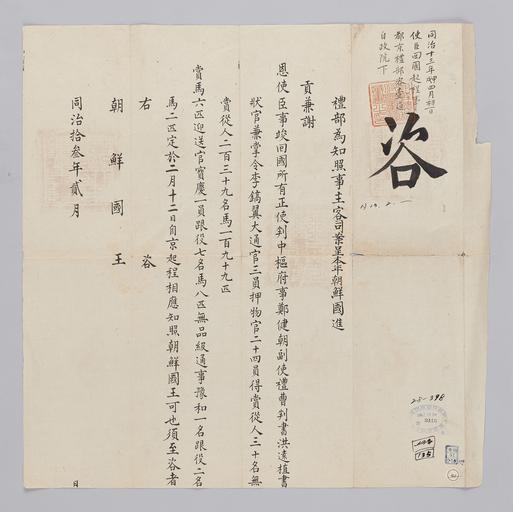 同治十三年 四月 日
使臣回國起程事
都京禮部咨
自政院下
咨
禮部為知照事主客司案呈本年朝鮮國進
貢兼謝
恩使臣事竣回國所有正使判中樞府事鄭健朝副使禮曹判書洪遠植書
狀官兼掌令李鎬翼大通官三員押物官二十四員得賞從人三十名無
賞從人二百三十九名馬一百九十九匹
賞馬六匹迎送官寶慶一員跟役七名馬八匹無品級通事豫和一名跟役二名
馬二匹定於二月十二日自京起程相應知照朝鮮國王可也須至咨者
右 咨
朝鮮國王
同治拾叁年貳月 日
25-398